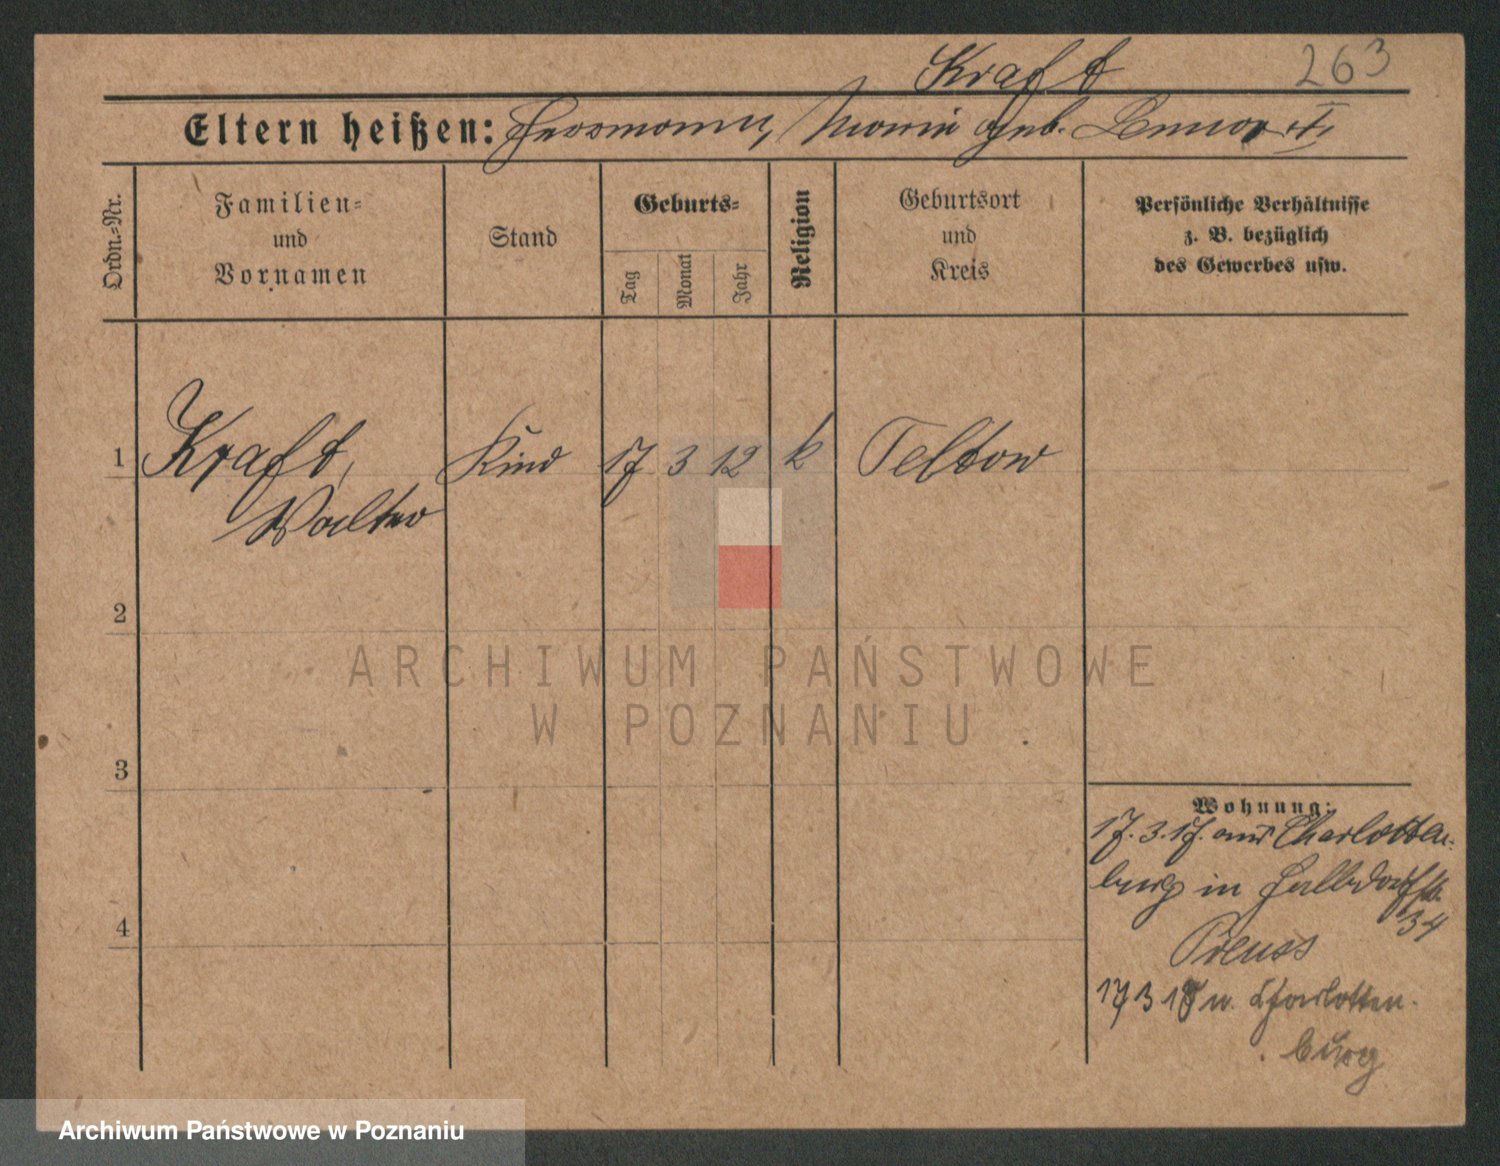 Kraft
263
Eltern heißen: Herrmann, Marie geb.
Ordn.-Nr.
Familien-
und
Vornamen
Stand
Geburts-
Tag
Monat
Jahr
Religion
Geburtsort
und
Kreis
Persönliche Verhältnisse
z. B. bezüglich
des Gewerbes usw.
1 Kraft, Kind 17 3 12 k Teltow
Walter
2
ARCHIWUM PAŃSTWOWE
W POZNANIU
3
Wohnung:
17.3.17. aus Charlotten-
burg in Halbdorfstr.
34
4
Preuss
17 3 18 n. Charlotten-
burg
Archiwum Państwowe w Poznaniu